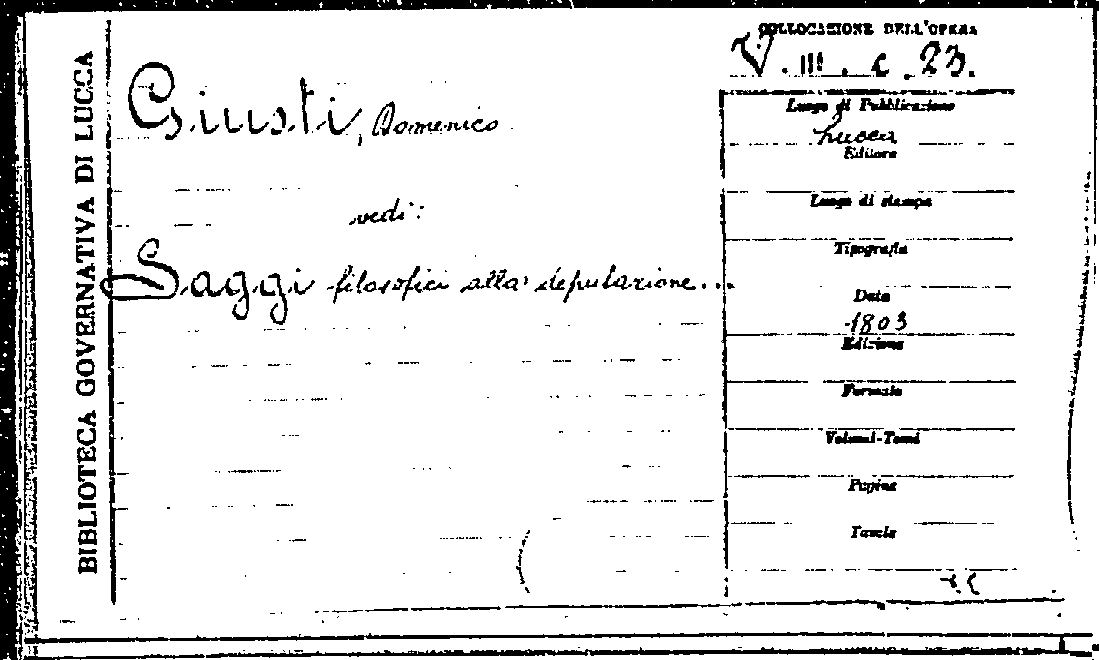 BIBLIOTECA GOVERNATIVA DI LUCCA
COLLOCAZIONE DELL'OPERA
V. III. c. 23.
Giusti, Domenico
vedi:
Saggi filosofici alla deputazione...
Luogo di Pubblicazione
Lucca
Editore
Luogo di stampa
Tipografia
Data
1803
Edizione
Formato
Volumi-Tomi
Pagine
Tavole